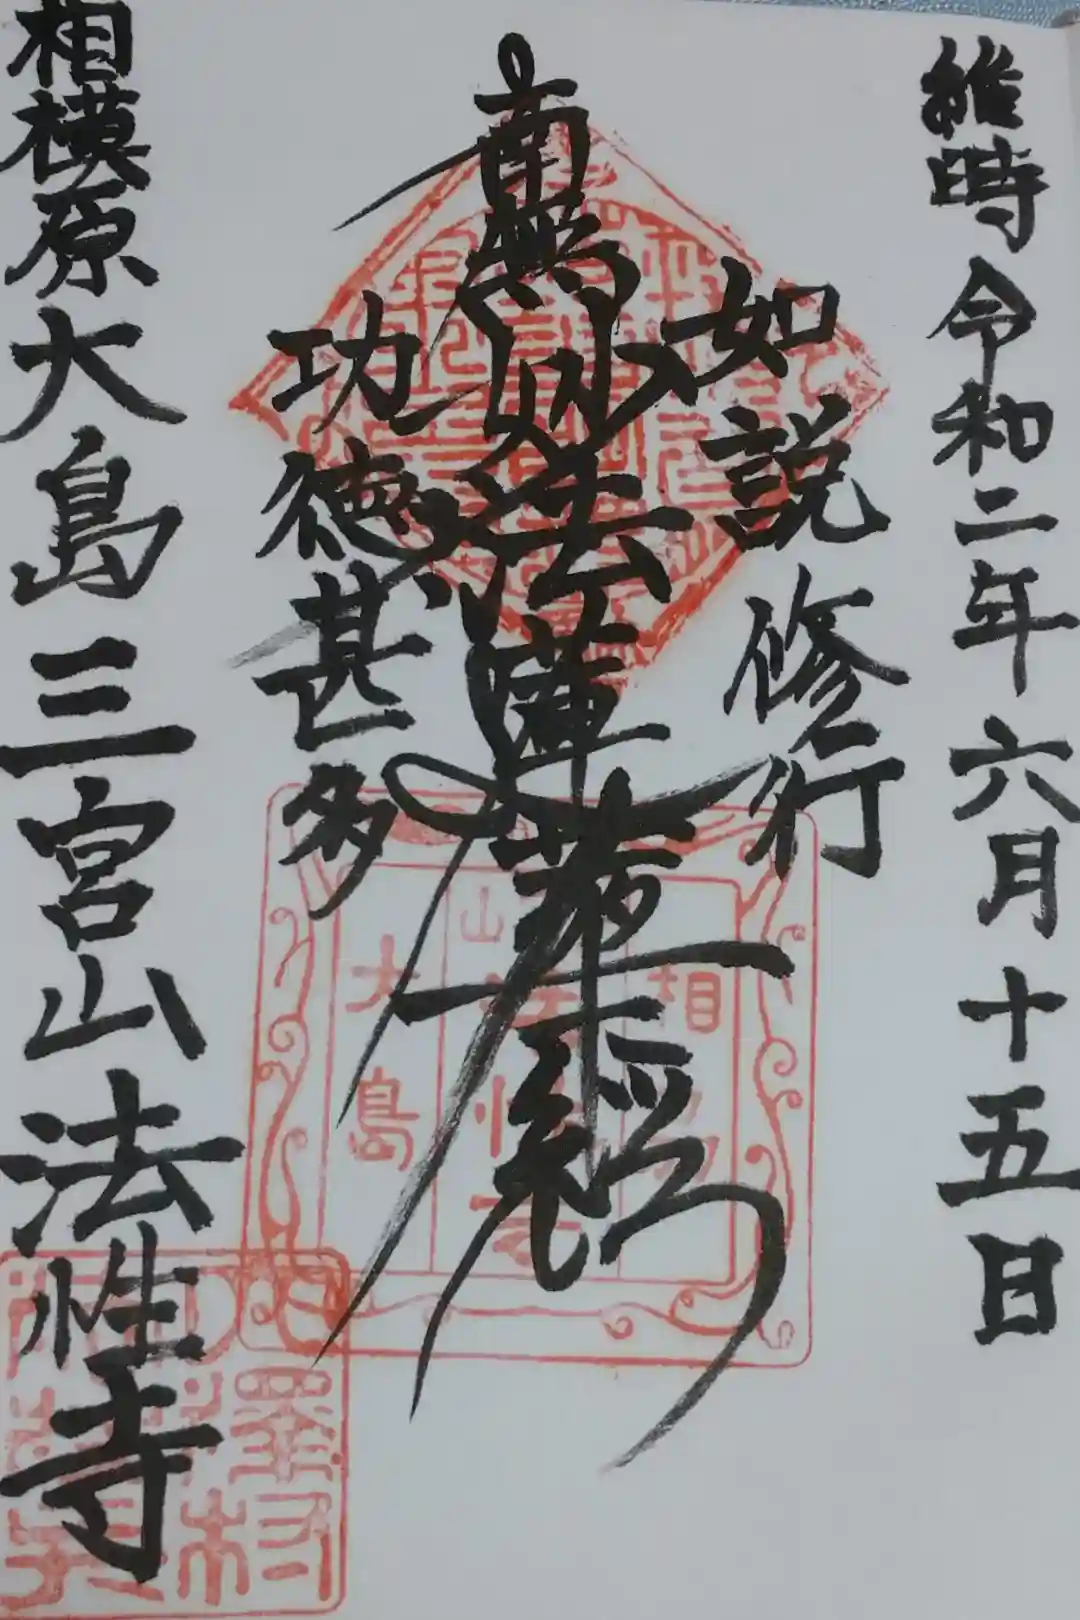 維時令和二年六月十五日
如説修行
南無妙法蓮華経
功徳甚多
相模原大島三宮山法性寺
相
山
大島
村